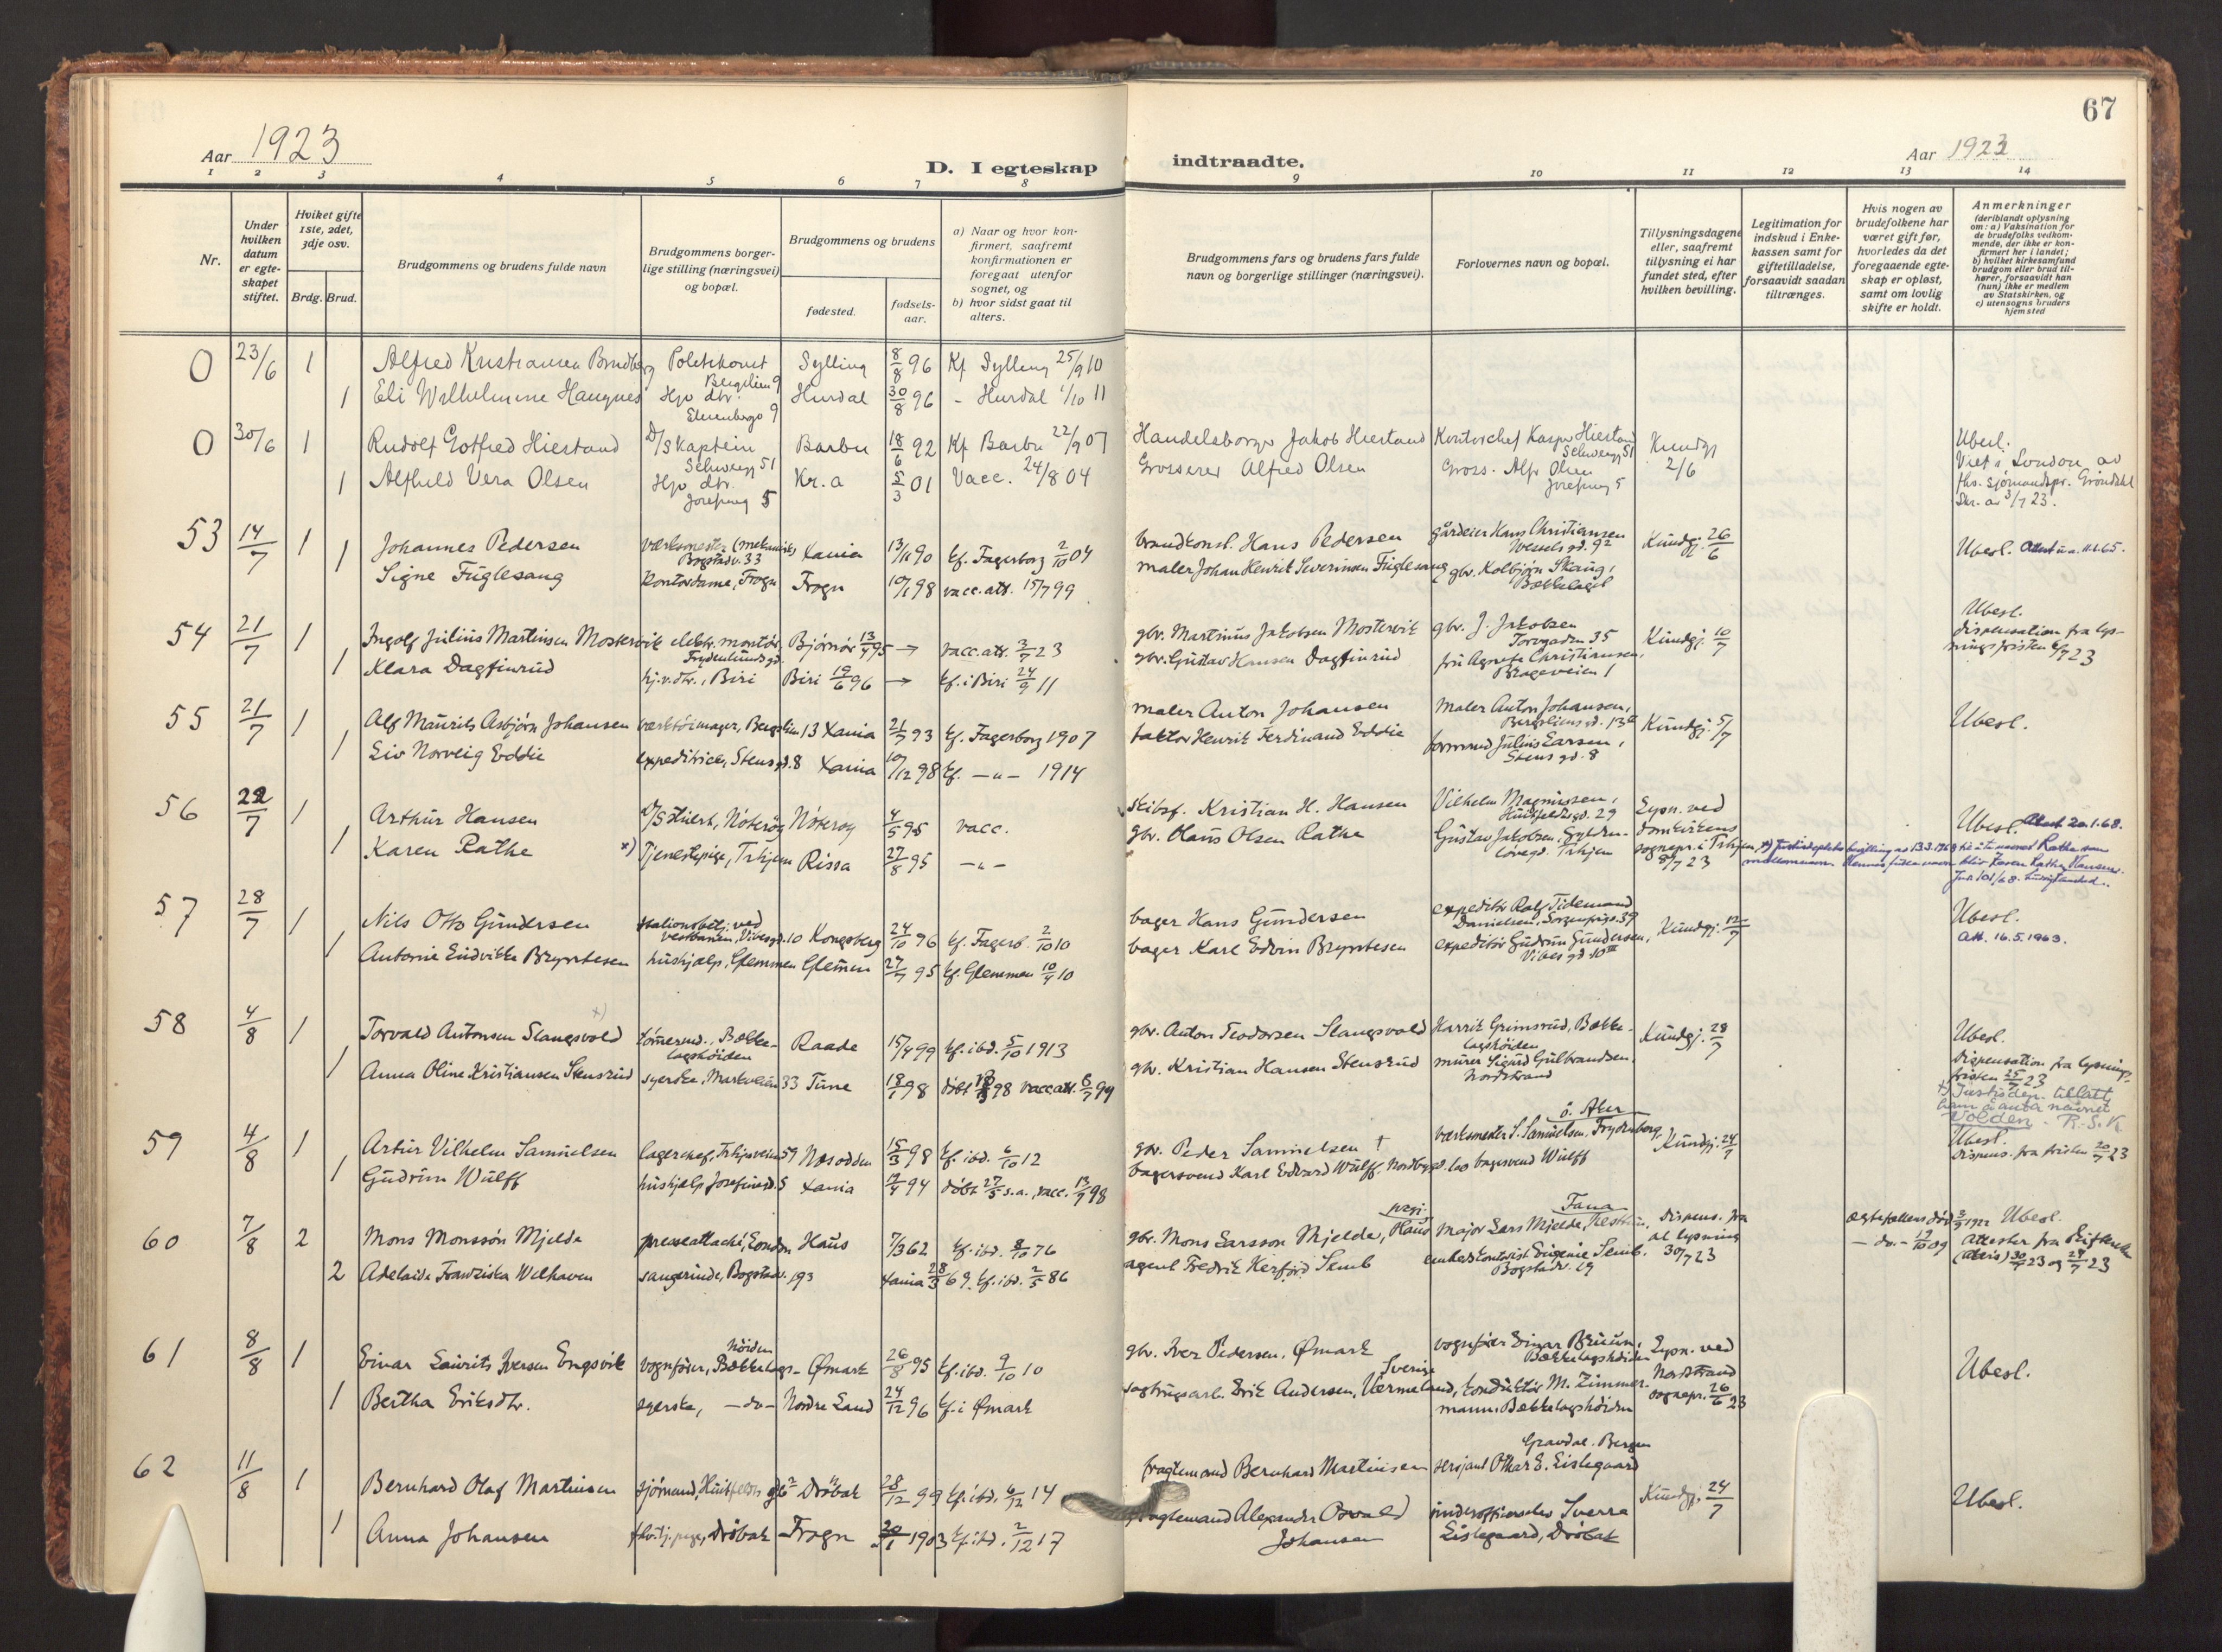 67
Aar 1923
D. I egteskap
indtraadte.
Aar 1923
1 2 3 4 5 6 7 8 9 10 11 12 13 14
Nr.
Under hvilken datum er egte-skapet stiftet.
Hviket gifte 1ste, 2det, 3dje osv.
Brdg. Brud.
Brudgommens og brudens fulde navn
Brudgommens borger-lige stilling (næringsvei) og bopæl.
Brudgommens og brudens
fødested.
fødsels-aar.
a) Naar og hvor kon-firmert, saafremt konfirmationen er foregaat utenfor sognet, og
b) hvor sidst gaat til alters.
Brudgommens fars og brudens fars fulde navn og borgerlige stillinger (næringsvei).
Forlovernes navn og bopæl.
Tillysningsdagene eller, saafremt tillysning ei har fundet sted, efter hvilken bevilling.
Legitimation for indskud i Enke-kassen samt for giftetilladelse, forsaavidt saadan tiltrænges.
Hvis nogen av brudefolkene har været gift før, hvorledes da det foregaaende egte-skap er opløst, samt om lovlig skifte er holdt.
Anmerkninger (deriblandt oplysning om: a) Vaksination for de brudefolks vedkom-mende, der ikke er kon-firmert her i landet; b) hvilket kirkesamfund brudgom eller brud til-hører, forsaavidt han (hun) ikke er medlem av Statskirken, og c) utensogns bruders hjemsted
0 23/6 1 Alfred Kristiansen Politikonst Sylling 8/8 96 Kf Sylling 25/9 10
1 Eli Wilhelmine Haugnes Hjv dtr. Hurdal 30/8 96 - Hurdal 1/10 11
0 30/6 1 Rudolf Gotfred Hiestand D/S Kaptein Barbu 18/6 92 Kf Barbu 22/9 07 Handelsborger Jakob Hiestand Kontorchef Kasper Hiestand Kundgj 2/6 Ubesl.
Schwensg 51
1 Alfhild Vera Olsen Hjv dtr. Josefinesg 5 Kr.a 5/3 01 Vacc. 24/8 04 Grosserer Alfred Olsen Gross. Alfr Olsen Josefinesg 5 Viet i London av
ths. sjømandspr. Grøndahl
Skr. av 3/7 23.
53 14/7 1 Johannes Pedersen værksmester (mekanisk) Bogstadv. 33 Xania 13/11 90 kf. Fagerborg 2/10 04 brandkonst. Hans Pedersen gårdeier Hans Christiansen Wessels gd. 9 Kundgj. 26/6 Ubesl. Attest u.a. 11.1.65.
1 Signe Fuglesang kontordame, Frogn Frogn 10/1 98 vacc.att. 15/7 99 maler Johan Henrik Severinsen Fuglesang gbr. Kolbjørn Skaug, Bækkelaget
54 21/7 1 Ingolf Julius Martinsen Mostervik elektr. montør, Frydenlundsgd. Bjørnør 13/7 95 vacc.att. 2/7 23 gbr. Martinus Jakobsen Mostervik gbr. J. Jakobsen Torvgaden 35 Kundgj. 10/7 Ubesl.
dispensation fra lys-
ningsfristen 6/7 23
1 Klara Dagfinrud hj.v.dtr., Biri Biri 19/6 96 kf. i Biri 24/9 11 gbr. Gustav Hansen Dagfinrud fru Agnete Christiansen, Brageveien 1
55 21/7 1 Alf Maurits Asbjørn Johansen værktøimager, Bergslien 13 Xania 21/7 93 kf. Fagerborg 1907 maler Anton Johansen Maler Anton Johansen, Bergsliensgd. 13 Kundgj. 5/7 Ubesl.
1 Liv Norveig Eddie expeditrice, Stensgd. 8 Xania 10/12 98 kf. -"- 1914 faktor Henrik Ferdinand Eddie formand Julius Larsen, Stens gd. 8
56 22/7 1 Arthur Hansen D/S Stuert, Nøterøy Nøterøy 4/5 95 vacc. Skibsf. Kristian H. Hansen Vilhelm Magnussen, Huitfeldtsgd. 29 Lysn. ved domkirkens sognepr. i Trhjem 8/7 23 Ubesl. Attest 20.1.68.
1 Karen Rathe x) Tjenestepige, Trhjem Rissa 27/8 95 -"- gbr. Claus Olsen Rathe Gustav Jakobsen, Trhjem
57 28/7 1 Nils Otto Gundersen stationsbetj. ved vestbanen, Vibesgd. 10 Kongsberg 24/10 96 kf. Fagerb. 2/10 10 bager Hans Gundersen expeditør Rolf Tidemand Danielsen, Sorgenfrigd. 39 Kundgj. 12/7 Ubesl.
Att. 16.5.1963.
1 Antonie Brynhesen hushjælp, Glemmen Glemmen 27/7 95 kf. Glemmen 10/4 10 bager Karl Edvin Brynhesen expeditør Gudrun Gundersen, Vibes gd 10
58 4/8 1 Torvald Antonsen Slangsvold x) tømmermd., Bække-lagshøiden Raade 15/4 99 kf. ibd. 5/10 1913 gbr. Anton Teodorsen Slangsvold Grimsrud, Bække-lagshøiden Kundgj. 28/7 Ubesl.
Dispensation fra lysnings-
fristen 25/7 23
x) Justisdep. tillatt
ham å anta navnet
Volden. R.S.K.
1 Anna Oline Kristiansen Stensrud syerske, Markveien 33 Tune 18/1 98 døbt 98 vacc.att. 6/7 99 gbr. Kristian Hansen Stensrud murer Sigurd Gulbrandsen, Nordstrand
59 4/8 1 Artur Vilhelm Samuelsen lagerchef, Trhjsveien 59 Næsodden 15/3 98 kf. ibd. 6/10 12 gbr. Peder Samuelsen † værksmester S. Samuelsen, Frydenberg, ø. Aker Kundgj. 24/7 Ubesl.
Dispens. fra fristen 20/7 23
1 Gudrun Wulff hushjælp Josefinesgd. 5 Xania 12/4 94 døbt 27/5 s.a., vacc. 13/7 98 bagersvend Karl Edvard Wulff, Nordbygd. bagersvend Wulff
60 7/8 2 Mons Monssøn Mjelde presseattaché, London Haus 7/3 62 kf. ibd. 8/10 76 gbr. Mons Larsson Mjelde, Haus major Lars Mjelde, Nestun, Fana Dispens. fra al lysning 30/7 23 ægtefællens død 3/9 1912 Ubesl.
2 Adelaide Franziska Welhaven sangerinde, Bogstadv. 193 Xania 28/3 69 kf. ibd. 2/5 86 agent Fredrik Herfjord Semb Eugenie Semb, Bogstadv. 19 - do. - 17/10 09 Attester fra Skifteretten
(Oslo) 30/7 23 og 24/7 23
61 8/8 1 Einar Laurits Iversen Engsvik vognfører, Bækkelags-høiden Ømark 26/8 95 kf. ibd. 9/10 10 gbr. Iver Pedersen, Ømark vognfører Einar Bruun, Bækkelagshøiden Lysn. ved Nordstrand sognepr. 26/6 23 Ubesl.
1 Bertha Eriksdtr. syerske, -do- Nordre Land 24/12 96 kf. i Ømark sagbrugsarb. Erik Andersen, Vermeland, Sverige konduktør M. Zimmer-mann, Bækkelagshøiden
62 11/8 1 Bernhard Olaf Martinsen sjømand, Huitfeldts gd 6 Drøbak 28/12 99 kf. ibd. 6/12 14 fragtemand Bernhard Martinsen sersjant Othar E. Eislegaard Gravdal, Bergen Kundgj. 24/7 Ubesl.
1 Anna Johansen Drøbak Frogn 20/1 1903 kf. ibd. 2/12 17 fragtemand Alexander Osvald Johansen underoffiserselev Sverre Eislegaard, Drøbak